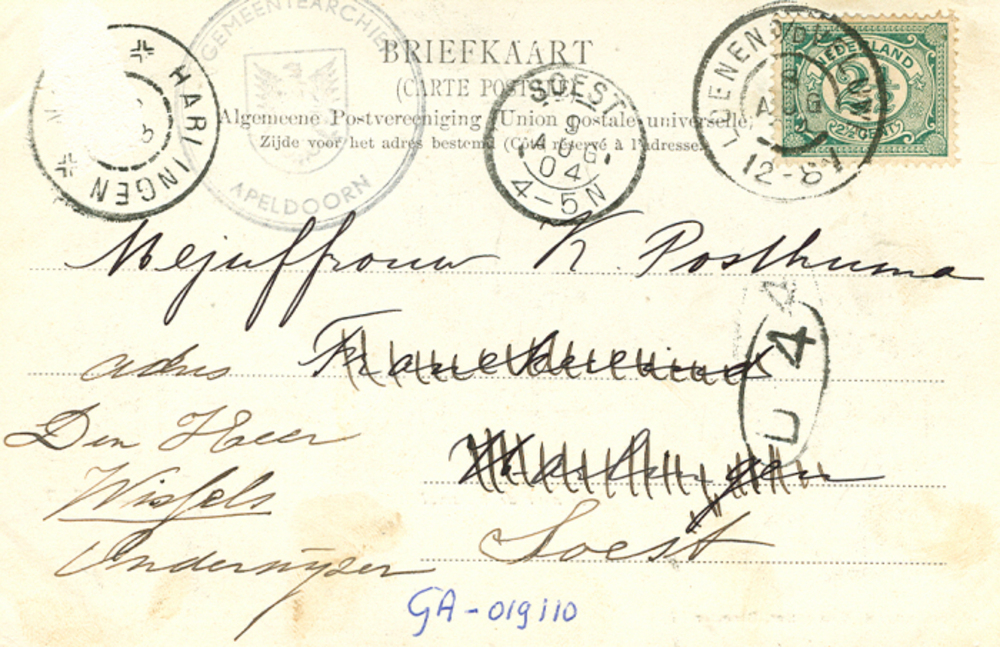 BRIEFKAART
(CARTE POSTALE)
Algemeene Postvereeniging (Union postale universelle)
Zijde voor het adres bestemd (Côté réservé à l'adresse)
GEMEENTEARCHIEF
APELDOORN
HARLINGEN
SOEST
9
AUG
04
4-5N
AUG
12-8
NEDERLAND
2½
(2½ CENT)
Mejuffrouw K. Posthuma
adres
Den Heer
Harlingen
Onderwijzer
Soest
4
GA-019110